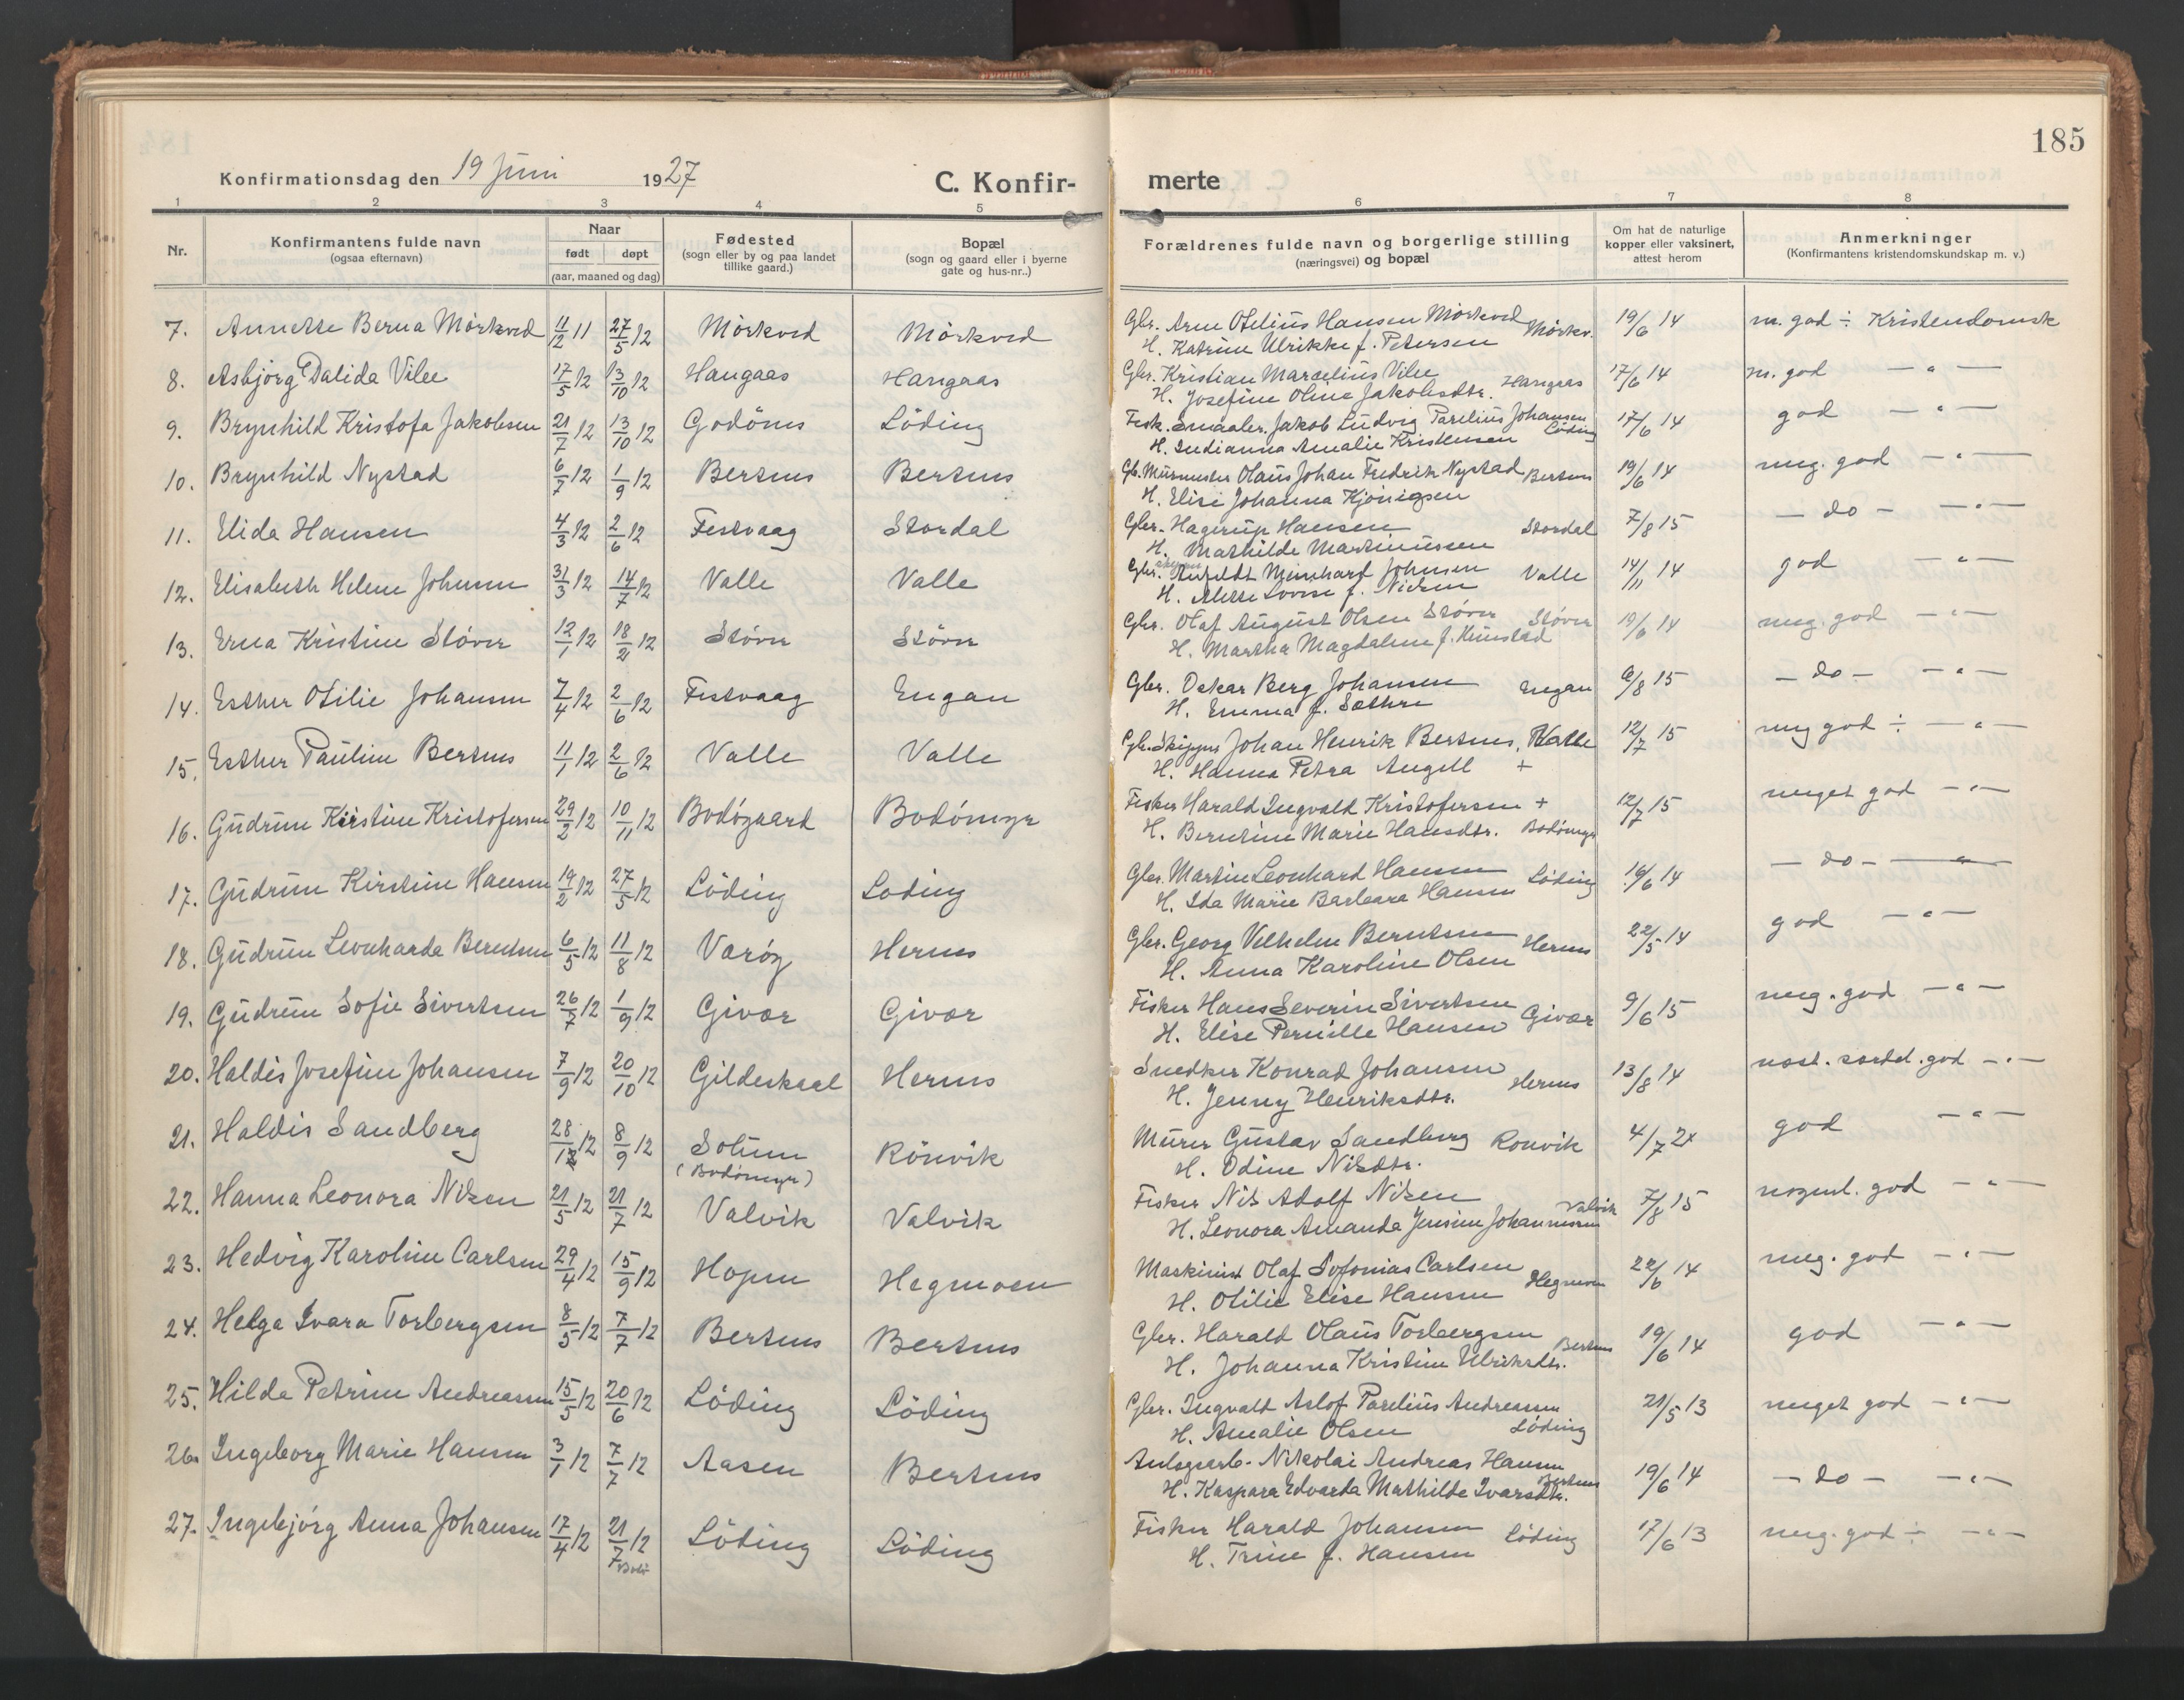 185
Konfirmationsdag den 19 Juni 1927 C. Konfir- merte
1 2 3 4 5 6 7 8
Nr. Konfirmantens fulde navn (ogsaa efternavn) Naar født døpt (aar, maaned og dag) Fødested (sogn eller by og paa landet tillike gaard.) Bopæl (sogn og gaard eller i byerne gate og hus-nr..) Forældrenes fulde navn og borgerlige stilling (næringsvei) og bopæl Om hat de naturlige kopper eller vaksinert, attest herom Anmerkninger (Konfirmantens kristendomskundskap m. v.)
7. Annette Berna Mörkved 11/12 11 27/5 12 Mörkved Mörkved Gbr. Arne Otelius Hansen Mörkved Mörkv. 19/6 14 m. god ÷ Kristendomsk
H. Katrine Ulrikke f. Petersen
8. Asbjörg Dalida Vilee 17/5 12 13/10 12 Hangaas Hangaas Gbr. Kristian Marcelius Vilee Hangaas 17/6 14 m. god — " —
H. Josefine Oline Jakobsdtr.
9. Brynhild Kristofa Jakobsen 21/7 12 13/10 12 Godönes Löding Fisk. Smaabr. Jakob Ludvig Parelius Johansen Löding 17/6 14 god — " —
H. Indianna Amalie Kristensen
10. Brynhild Nystad 6/7 12 1/9 12 Bertnes Bertnes Gb. Murmester Olaus Johan Fredrik Nystad Bertnes 19/6 14 meg. god — " —
H. Elise Johanna Kjönigsen
11. Elida Hansen 4/3 12 2/6 12 Festvaag Stordal Gbr. Hagerup Hansen Stordal 7/8 15 — do — — " —
H. Mathilde Martinussen
12. Elisabeth Helene Johnsen 31/3 12 14/7 12 Valle Valle Gbr. Anfeldt Meinhard Johnsen Valle 14/11 14 god — " —
H. Mette Lovise f. Nielsen
13. Erna Kristine Stöver 12/1 12 18/2 12 Stöver Stöver Gbr. Olaf August Olsen Stöver Stöver 19/6 14 meg. god — " —
H. Martha Magdalene f. Kunstad
14. Esther Otilie Johansen 7/4 12 2/6 12 Festvaag Engan Gbr. Oskar Berg Johansen Engan 6/8 15 — do — — " —
H. Emma f. Sæthre
15. Esther Pauline Bertnes 11/1 12 2/6 12 Valle Valle Gbr. Skipper Johan Henrik Bertnes, Valle 12/7 15 meg god ÷ — " —
H. Hanna Petra Angell +
16. Gudrun Kirstine Kristofersen 29/2 12 10/11 12 Bodögaard Bodömyr Fisker Harald Ingvald Kristofersen + 12/7 15 meget god — " —
H. Berntine Marie Hansdtr. Bodömyr
17. Gudrun Kirstine Hansen 19/2 12 27/5 12 Löding Löding Gbr. Martin Leonhard Hansen Löding 16/6 14 — do — — " —
H. Ida Marie Barbara Hansen
18. Gudrun Leonharda Berntsen 6/5 12 11/8 12 Væröy Hernes Gbr. Georg Velhelm Berntsen Hernes 22/5 14 god — " —
H. Anna Karoline Olsen
19. Gudrun Sofie Sivertsen 26/7 12 1/9 12 Givær Givær Fisker Hans Severin Sivertsen Givær 9/6 15 meg. god — " —
H. Elise Pernille Hansen
20. Haldis Josefine Johansen 7/9 12 20/10 12 Gildeskaal Hernes Snedker Konrad Johansen Hernes 13/8 14 god — " —
H. Jenny Henriksdtr.
21. Haldis Sandberg 28/12 8/9 12 Solum (Bodömyr) Rönvik Murer Gustav Sandberg Rönvik 4/7 2x god — " —
H. Odine Nilsdtr.
22. Hanna Leonora Nilsen 21/5 12 21/7 12 Valvik Valvik Fisker Nils Adolf Nilsen Valvik 7/8 15 nogenl. god — " —
H. Leonora Amanda Jensine Johannesen
23. Hedvig Karoline Carlsen 29/4 12 15/9 12 Hopen Hegmoen Maskinist Olaf Sofonias Carlsen Hegmoen 22/6 14 meg. god — " —
H. Otilie Elise Hansen
24. Helga Ivara Torbergsen 8/5 12 7/7 12 Bertnes Bertnes Gbr. Harald Olaus Torbergsen Bertnes 19/6 14 god — " —
H. Johanna Kristine Ulriksdtr.
25. Hilda Petrine Andreassen 15/5 12 20/6 12 Löding Löding Gbr. Ingvald Aslof Parelius Andreassen 21/5 13 meget god — " —
H. Amalie Olsen Löding
26. Ingeborg Marie Hansen 3/1 12 7/7 12 Aasen Bertnes Anlegsarb. Nikolai Andreas Hansen Bertnes 19/6 14 — do — — " —
H. Kaspara Edvarda Mathilde Ivarsdtr.
27. Ingebjörg Anna Johansen 17/4 12 21/7 12 Bodö Löding Löding Fisker Harald Johansen Löding 17/6 13 meg. god ÷ — " —
H. Trine f. Hansen